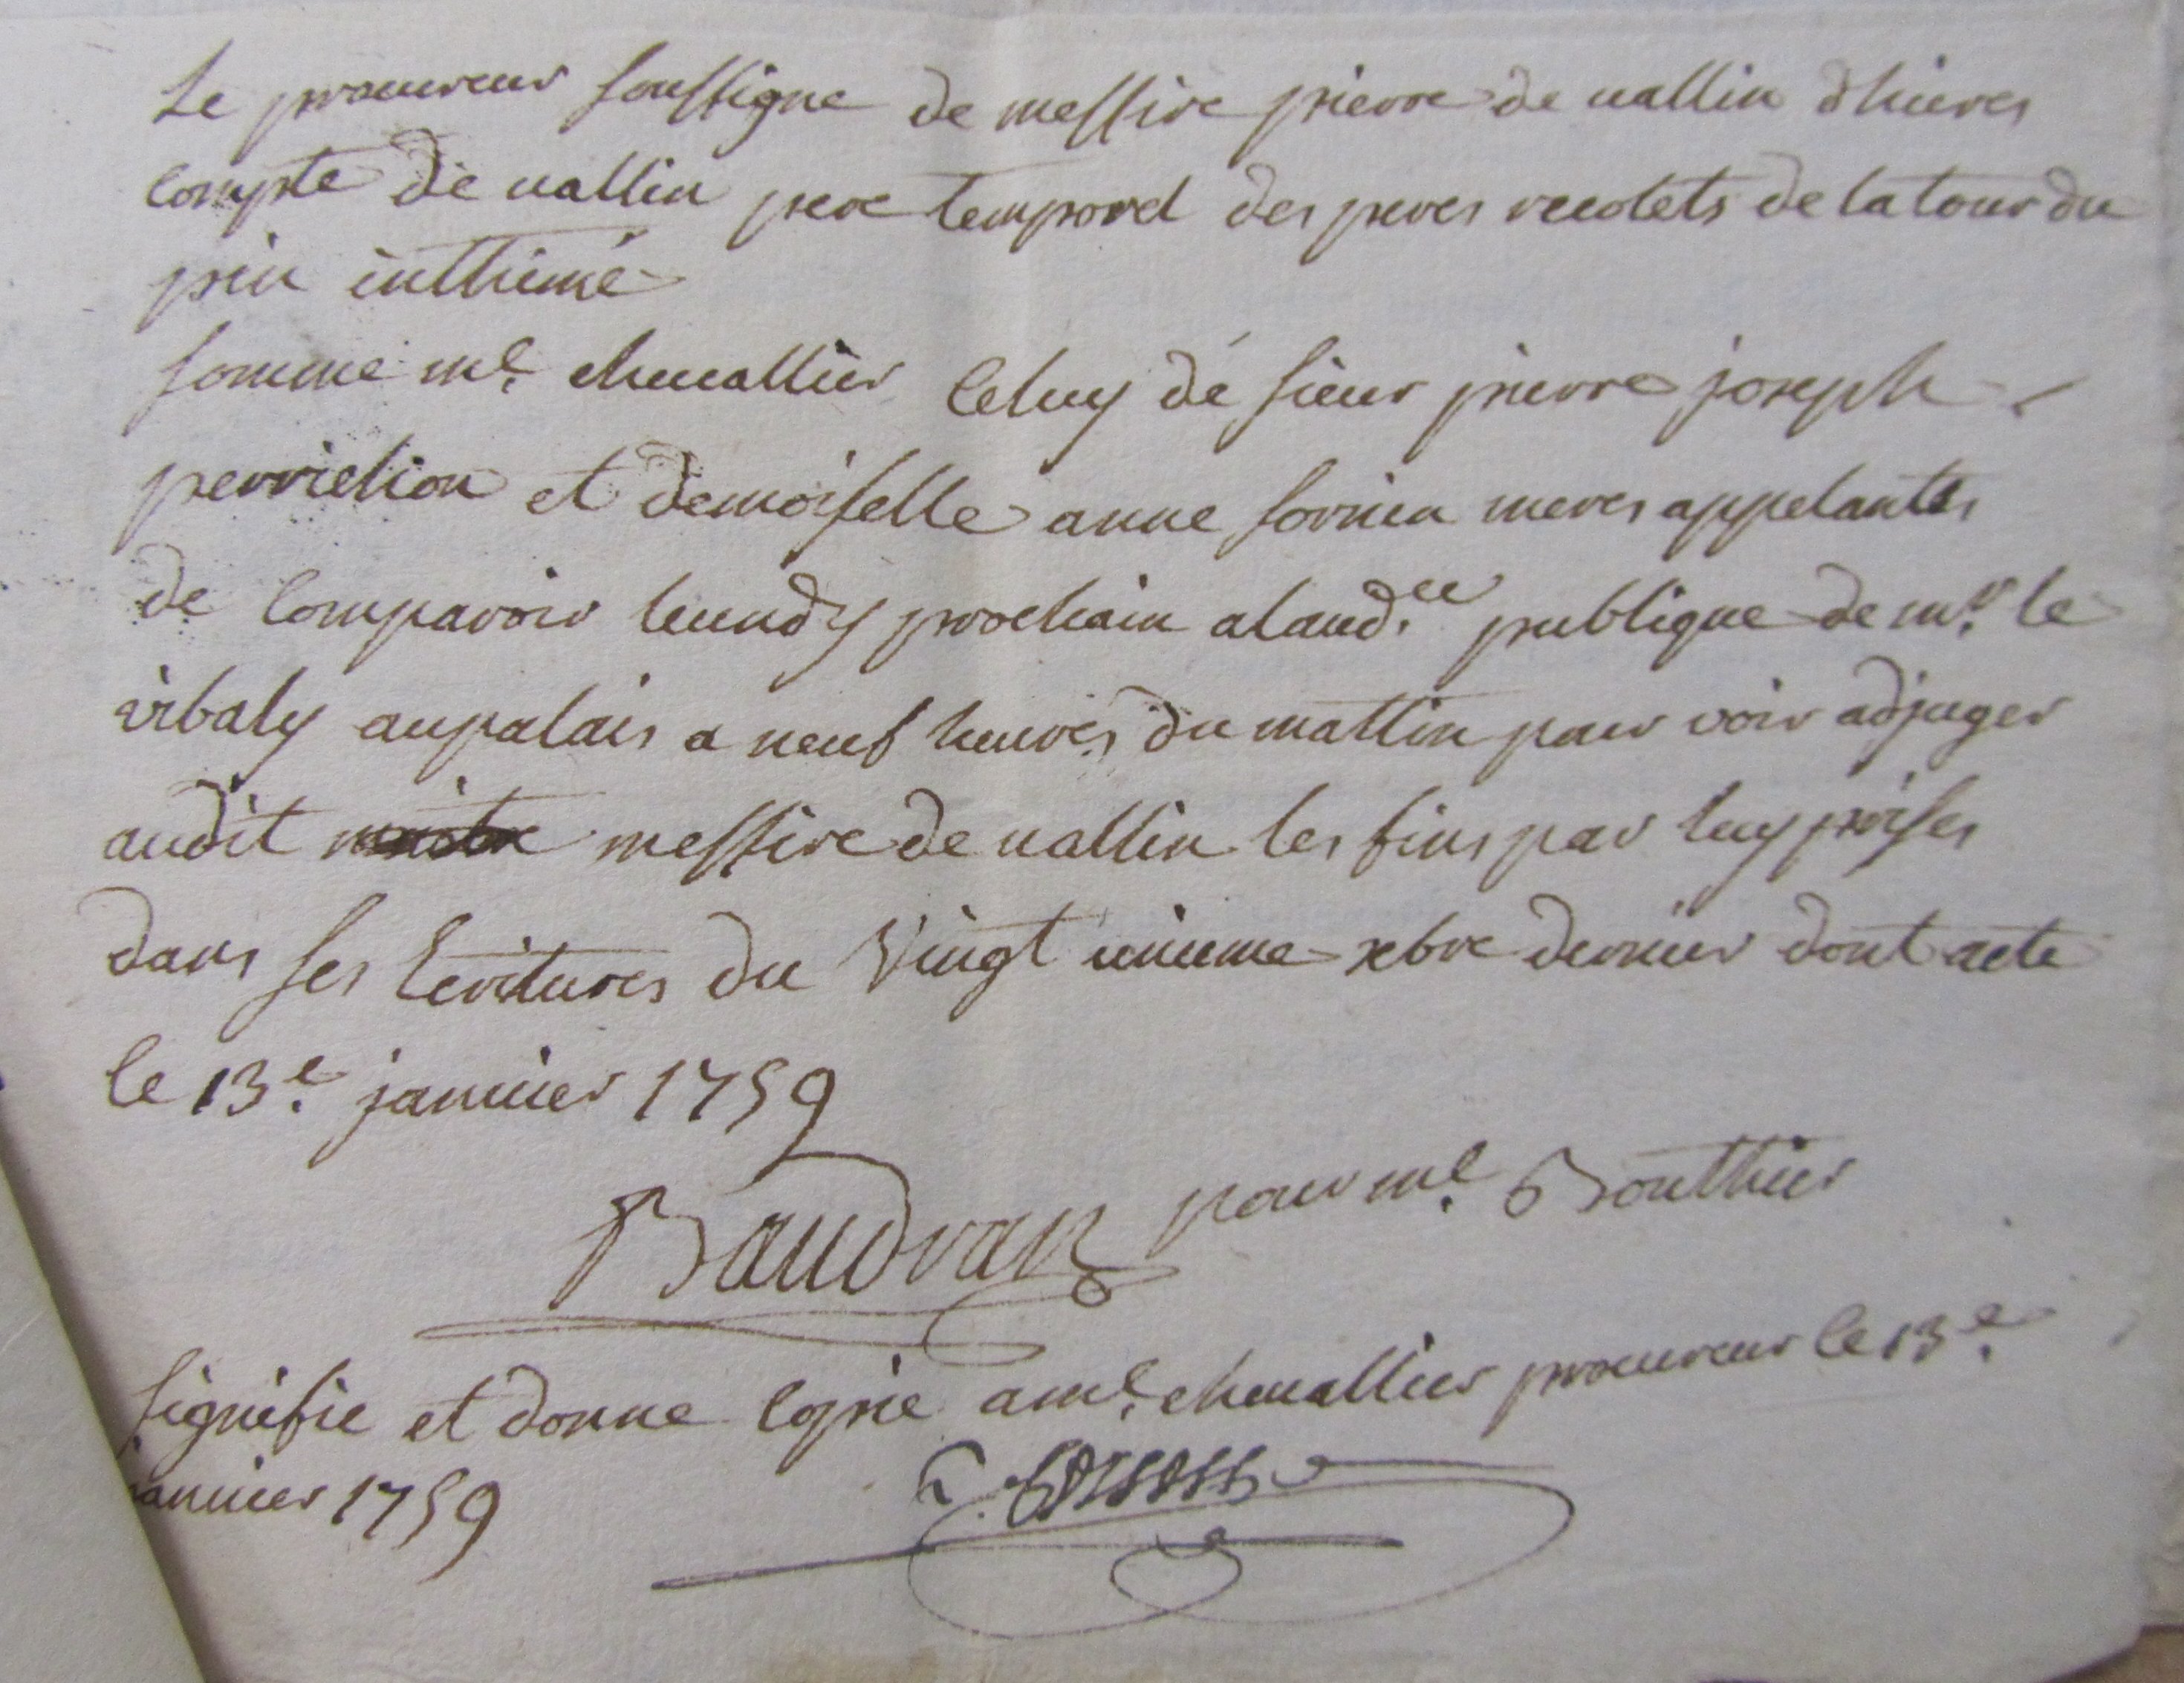 Le procureur soussigne de messire pierre de vallin dhieres
compte de vallin pere temporel des peres recolets de la tour du
pin inthimé
somme me. chevallier celuy de sieur pierre joseph
perrichon et demoiselle anne sornin meres appelants
de comparoir leundy prochain alaud.ce publique de mr. le
vibaly aupalais a neuf heures du mattin pour voir adjuger
audit messire de vallin les fins par luy prises
dans ses Ecritures du vingt unieme xbre dernier dont acte
le 13e. janvier 1759
Baudran pour me. Bouthier
signifie et donne copie a me. chevallier procureur le 13e.
janvier 1759